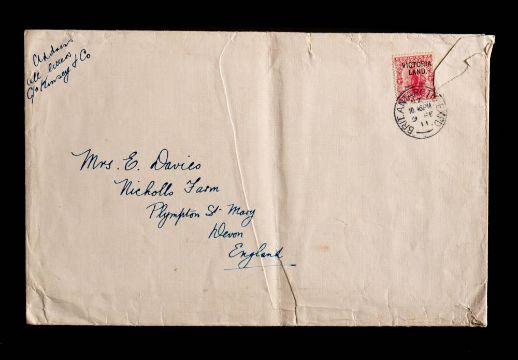 Address
all letters
c/o Kinsey & Co
VICTORIA
LAND.
BRIT. ANTARCTIC EXPD.
Mrs. E. Davies
Nicholls Farm
Plympton St. Mary
Devon
England